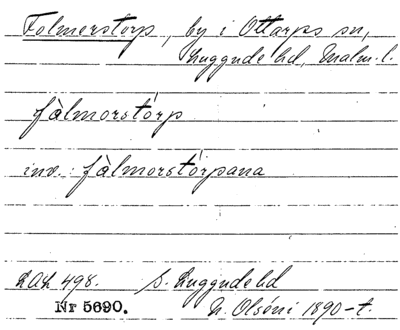 Folmerstorp, by i Ottarps sn,
Luggude hd, Malm. l.
fàlmorstórp
inv.: fàlmorstórpana
LAL 498. S. Luggude hd
Nr 5690. N. Olséni 1890-t.